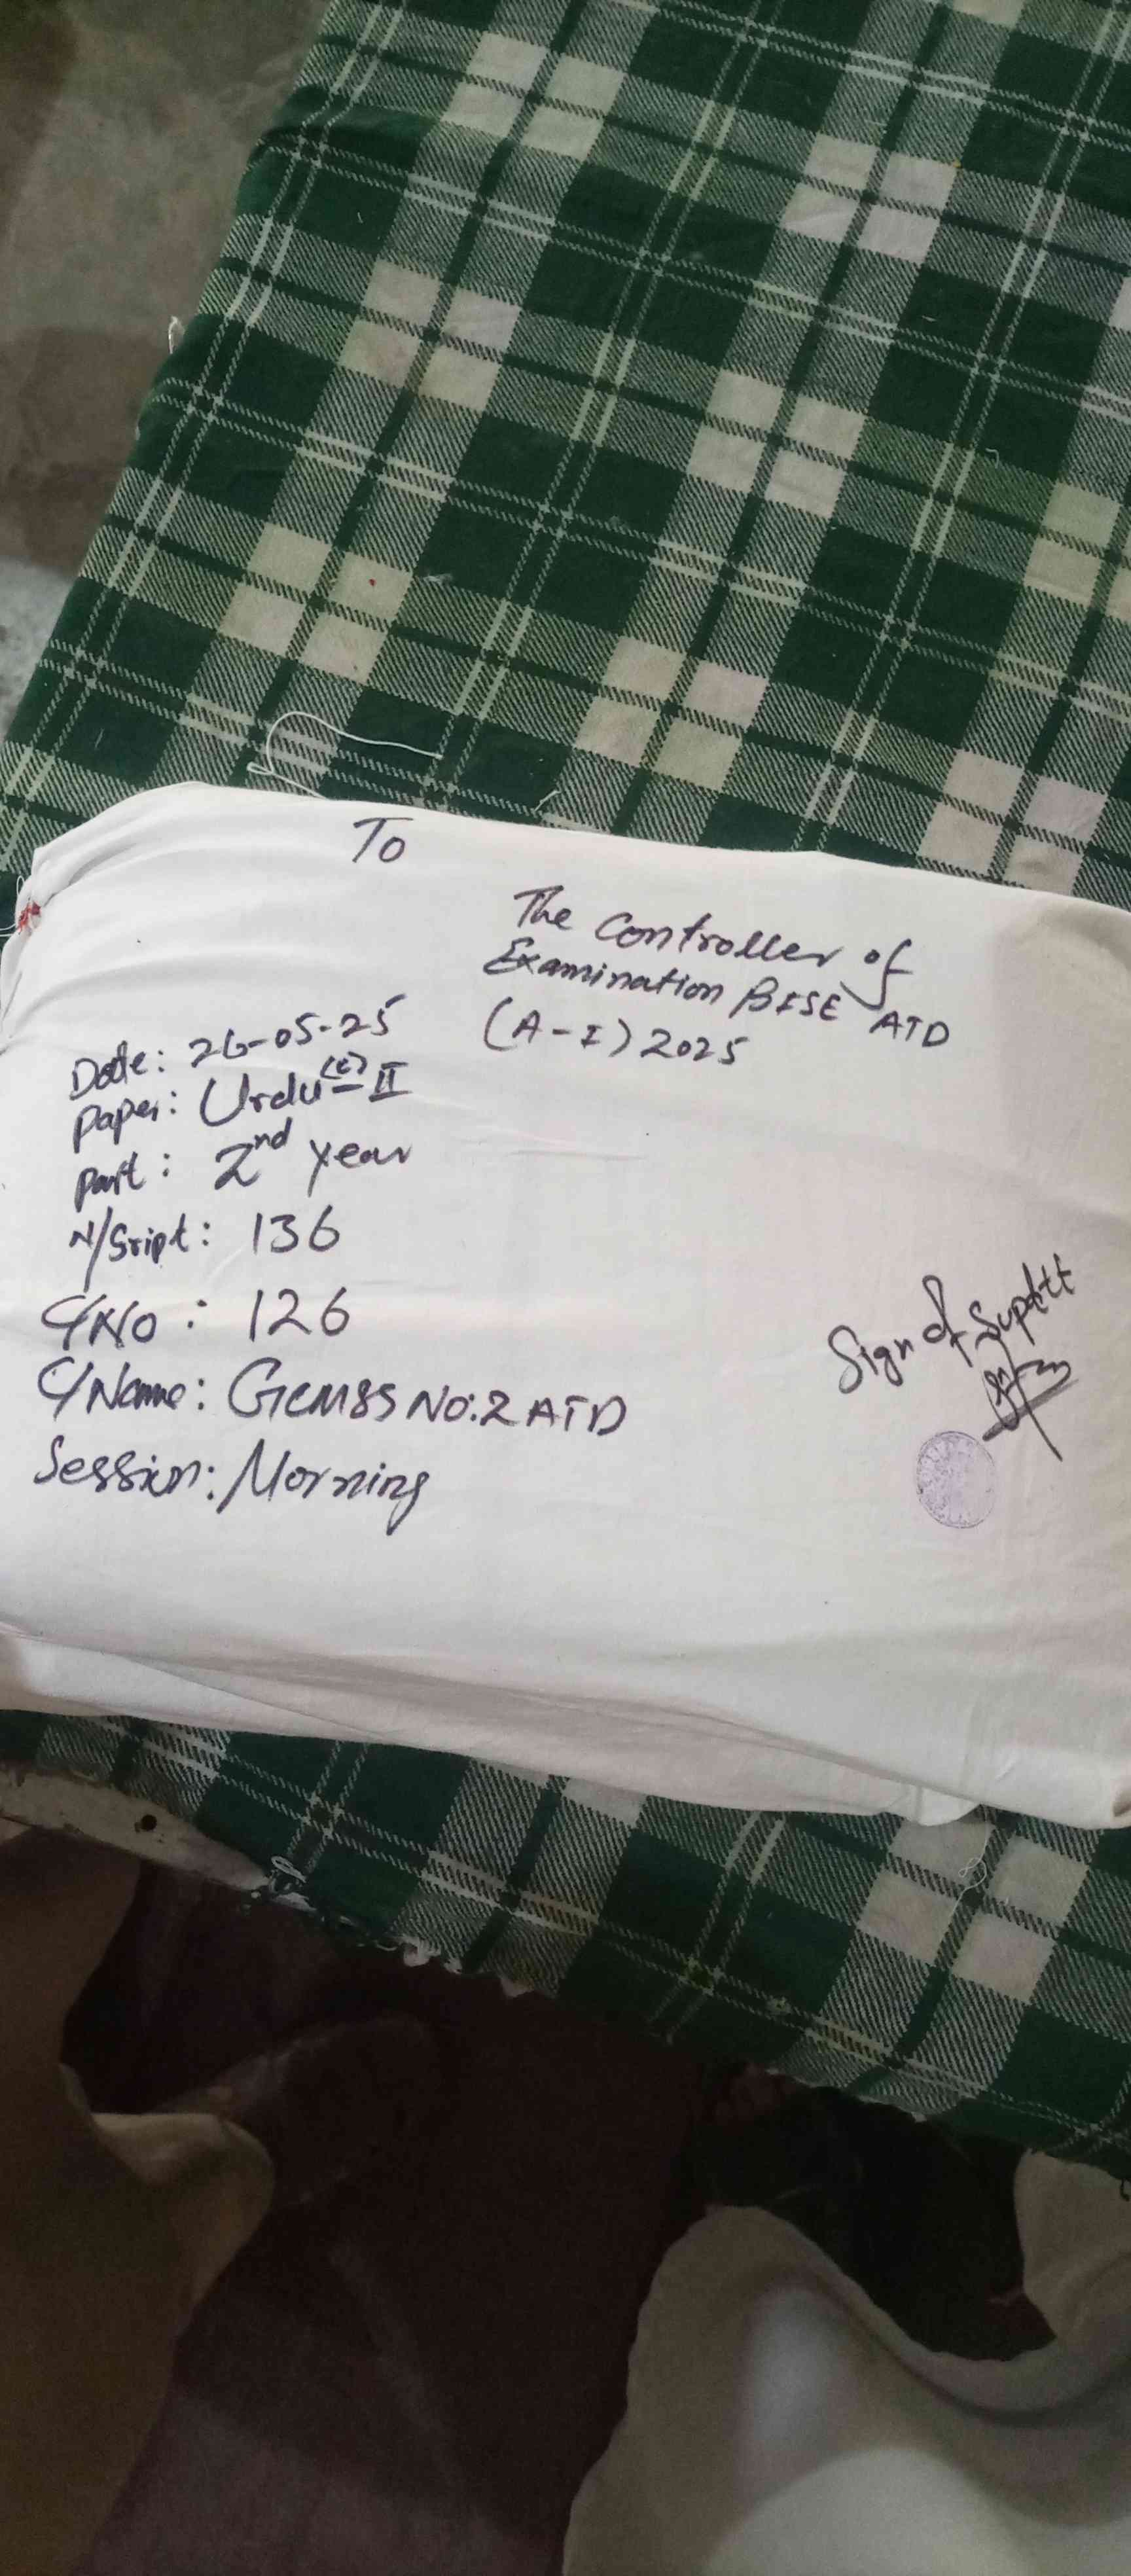 To
The Controller of
Examination BISE ATD
(A-I) 2025
Date: 26-05-25
Paper: Urdu(C)-II
Part: 2nd year
N/Sript: 136
C/No: 126
C/Name: GCMSS No:2 ATD
Session: Morning
Sign of Suptdtt